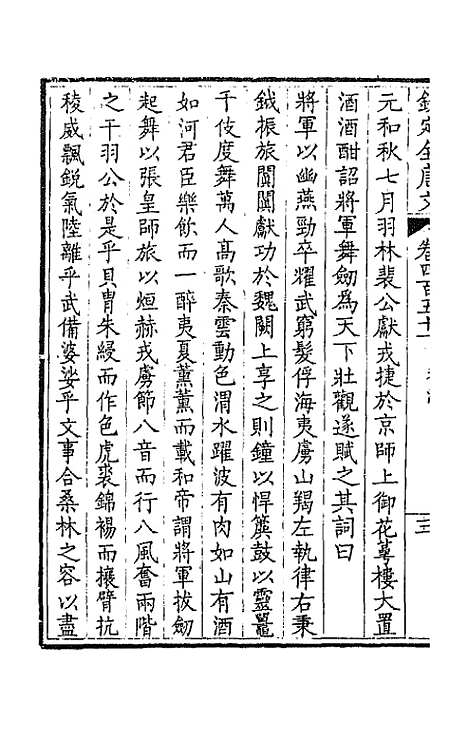 欽定全唐文
卷四百五十一
元和秋七月羽林裴公獻戎捷於京師上御花萼樓大置
酒酒酣詔將軍舞劒為天下壯觀遂賦之其詞曰
將軍以幽燕勁卒耀武窮髮俘海夷虜山羯左執律右秉
鉞振旅闐闐獻功於魏闕上享之則鐘以悍簴鼓以靈鼉
千伎度舞萬人高歌秦雲動色渭水躍波有肉如山有酒
如河君臣樂飲而一醉夷夏薰薰而載和帝謂將軍拔劒
起舞以張皇師旅以烜赫戎虜節八音而行八風奮兩階
之干羽公於是乎貝胄朱綅而作色虎裘錦裼而攘臂抗
稜威飄銳氣陸離乎武備婆娑乎文事合桑林之容以盡